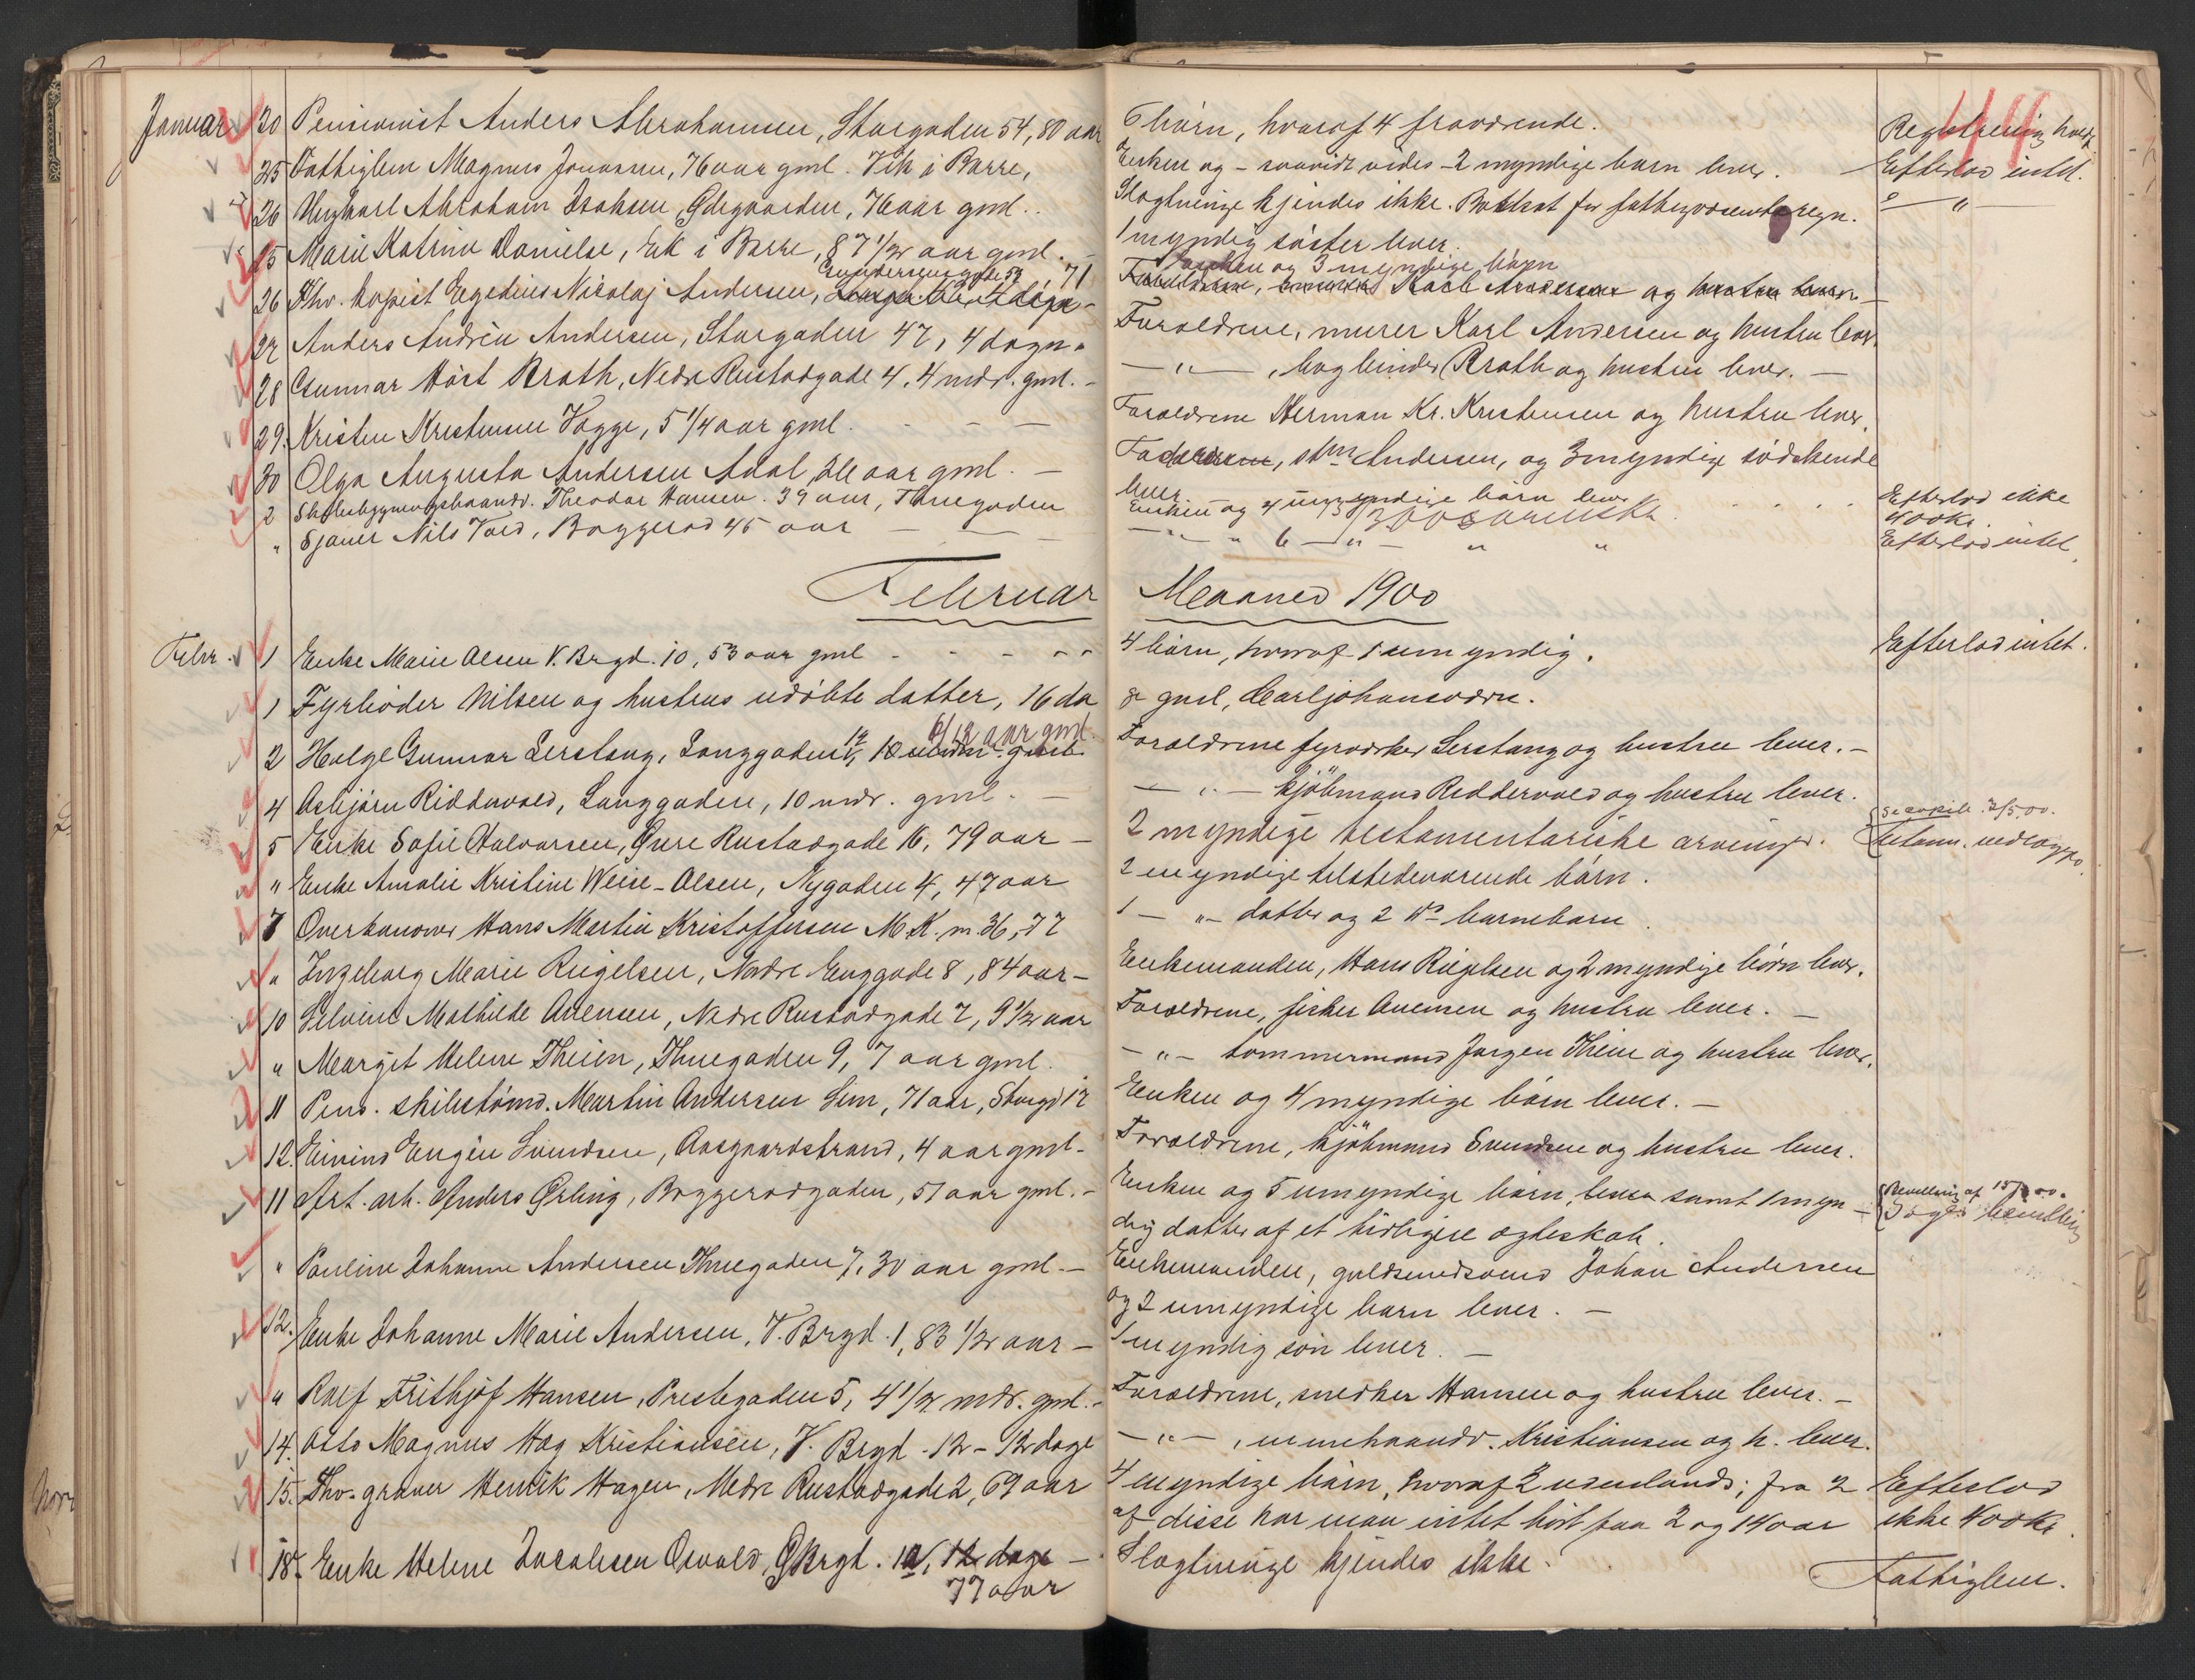 Januar 30 Pensionist Anders Abrahamsen, Storgaden 54, 80 aar 6 børn, hvoraf 4 fraværende. Registrering
44
25 Fattiglem Magnus Jonassen, 76 aar gml. Vik i Borre, Enken og - saavidt vides - 2 myndige børn lever. Efterlod intet.
26 Ungkarl Abraham Isaksen, 76 aar gml. Slægtninge kjendes ikke. for fattigvæsenets regn. — " —
25 Marie Katrine Danielse, Ek i Borre, 87 1/2 aar gml. 1 myndig søster lever.
Gundersensgade 53, 71 Enken og 3 myndige børn
26 Thv. kopist Egedius Nikolaj Andersen, Forældrene, Karl Andersen og hustru lever. —
27 Anders Andréu Andersen, Storgaden 47, 4 døgn. Forældrene, murer Karl Andersen og hustru lever.
28 Gunnar Hørt Brath, Nedre Rustadgade 4, 4 mdr. gml. - — " —, bogbinder Brath og hustru lever. —
29. Kristen Kristensen Vagge, 5 1/4 aar gml. - — — Forældrene Herman Kr. Kristensen og hustru lever.
30 Olga Augusta Andersen Aaal, 26 aar gml. — Faderen, Andersen, og 3 myndige sødskende
lever
2 Skibsbygningshaandv. Theodor Hansen. 39 aar, Thuegaden Enken og 4 umyndige børn lever Efterlod ikke
400 kr.
" Sjauer Nils Vold, Baggerød 45 aar — — " — " 6 — " — " " Efterlod intet.
Februar Maaned 1900
Febr. 1 Enke Marie Olsen V. Brgd. 10, 53 aar gml - - - - - 4 børn, hvoraf 1 umyndig. Efterlod intet.
1 Fyrbøder Nilsen og hustrus udøbte datter, 16 da ge gml, Carljohansværn.
6/12 aar gml.
2 Helge Gunnar Lerstang, Langgaden Forældrene fyrværker Lerstang og hustru lever. —
4 Asbjørn Riddervold, Langgaden, 10 mdr. gml. — — " — kjøbmand Riddervold og hustru lever.
3/5.00.
5 Enke Sofie Halvorsen, Øvre Rustadgade 16, 79 aar — 2 myndige testamentariske arvinger. testam. vedlagges
" Enke Amalie Kristine Weise-Olsen, Nygaden 4, 47 aar 2 myndige tilstedeværende børn.
7 Overkanoner Hans Martin Kristoffersen M.K. m. 36, 77 1 — " — datter og 2 do barnebarn.
" Ingeborg Marie Riegelsen, Nedre Enggade 8, 84 aar — Enkemanden, Hans Riegelsen og 2 myndige børn lever.
10 Selvine Mathilde Auensen, Nedre Rustadgade 7, 9 1/2 aar Forældrene, fisker Auensen og hustru lever. —
" Margit Helene Theien, Thuegaden 9, 7 aar gml. — " — tømmermand Jørgen Theien og hustru lever.
11 Pens. skibstømd. Martin Andersen Sem, 71 aar, Storgd 12 Enken og 4 myndige børn lever. —
12. Eivind Engén Svendsen, Aasgaardstrand, 4 aar gml — Forældrene, kjøbmand Svendsen og hustru lever.
11 Art. arb. Anders Ørling, Baggerødgaden, 51 aar gml. — Enken og 5 umyndige børn, lever samt 1 myn- Bevilling af
dig datter af et tidligere ægteskab.
" Pauline Johanne Andersen Thuegaden 7, 30 aar gml — Enkemanden, guldsmedsvend Johan Andersen
og 2 umyndige børn lever. —
12. Enke Johanne Marie Andersen, V. Brgd. 1, 83 1/2 aar — 1 myndig søn lever. —
" Rolf Frithjof Hansen, Prestegaden 5, 4 1/2 mdr. gml. — Forældrene, snedker Hansen og hustru lever. —
14. Otto Magnus Høg Kristiansen, V. Brgd. 12 - 12 dage — " —, minehaandv. Kristiansen og h. lever.
15. Thv. graver Henrik Hagen, Nedre Rustadgade 2, 69 aar 4 myndige børn, hvoraf 2 udenlands; fra 2 Efterlod
af disse har man intet hørt paa 2 og 14 aar ikke 400 kr.
18. Enke Helene Jacobsen Osvald, Ø Brgt. 12 dage — Slægtninge kjendes ikke. Fattiglem.
77 aar